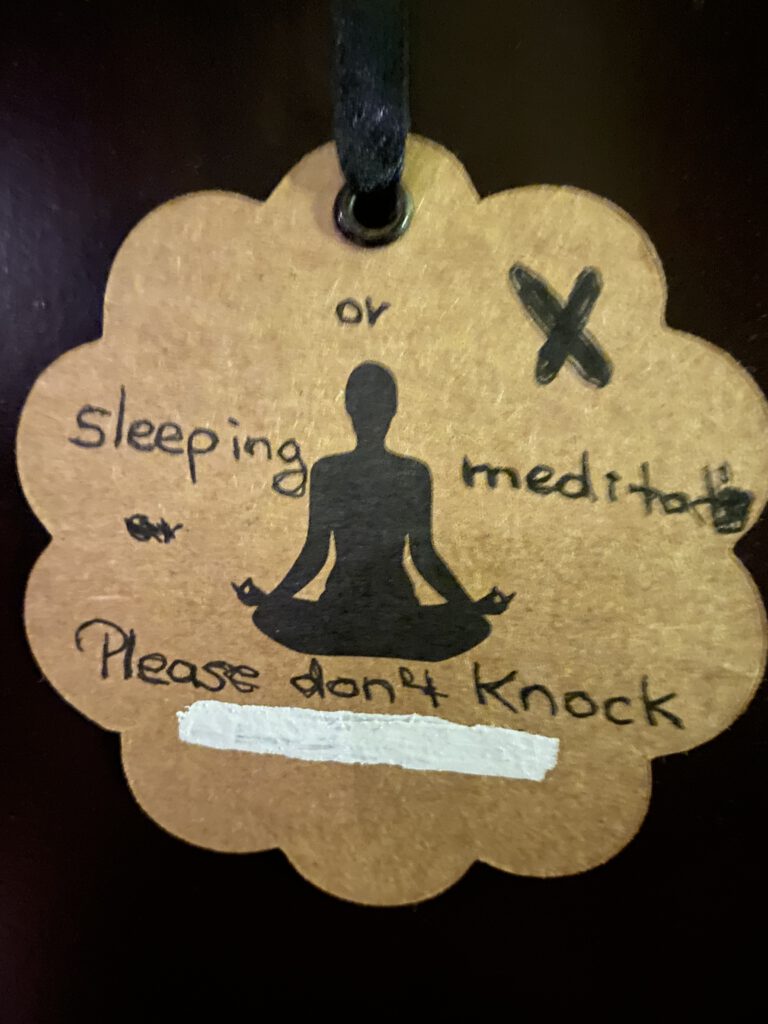 or
X
sleeping
meditat
Please don't Knock